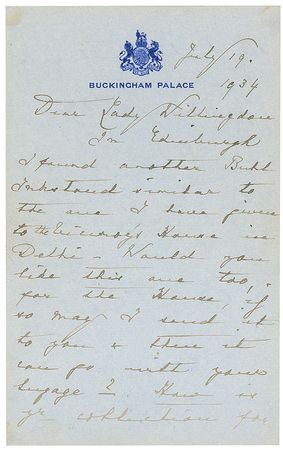 July 19.
BUCKINGHAM PALACE
1934
Dear Lady Willingdon
In Edinburgh
I found another Buhl
Inkstand similar to
the one I have given
to the Viceroy's House in
Delhi - Would you
like this one too,
for the House, if
so may I send it
to you & then it
can go with your
lugage? How is
yr collection for